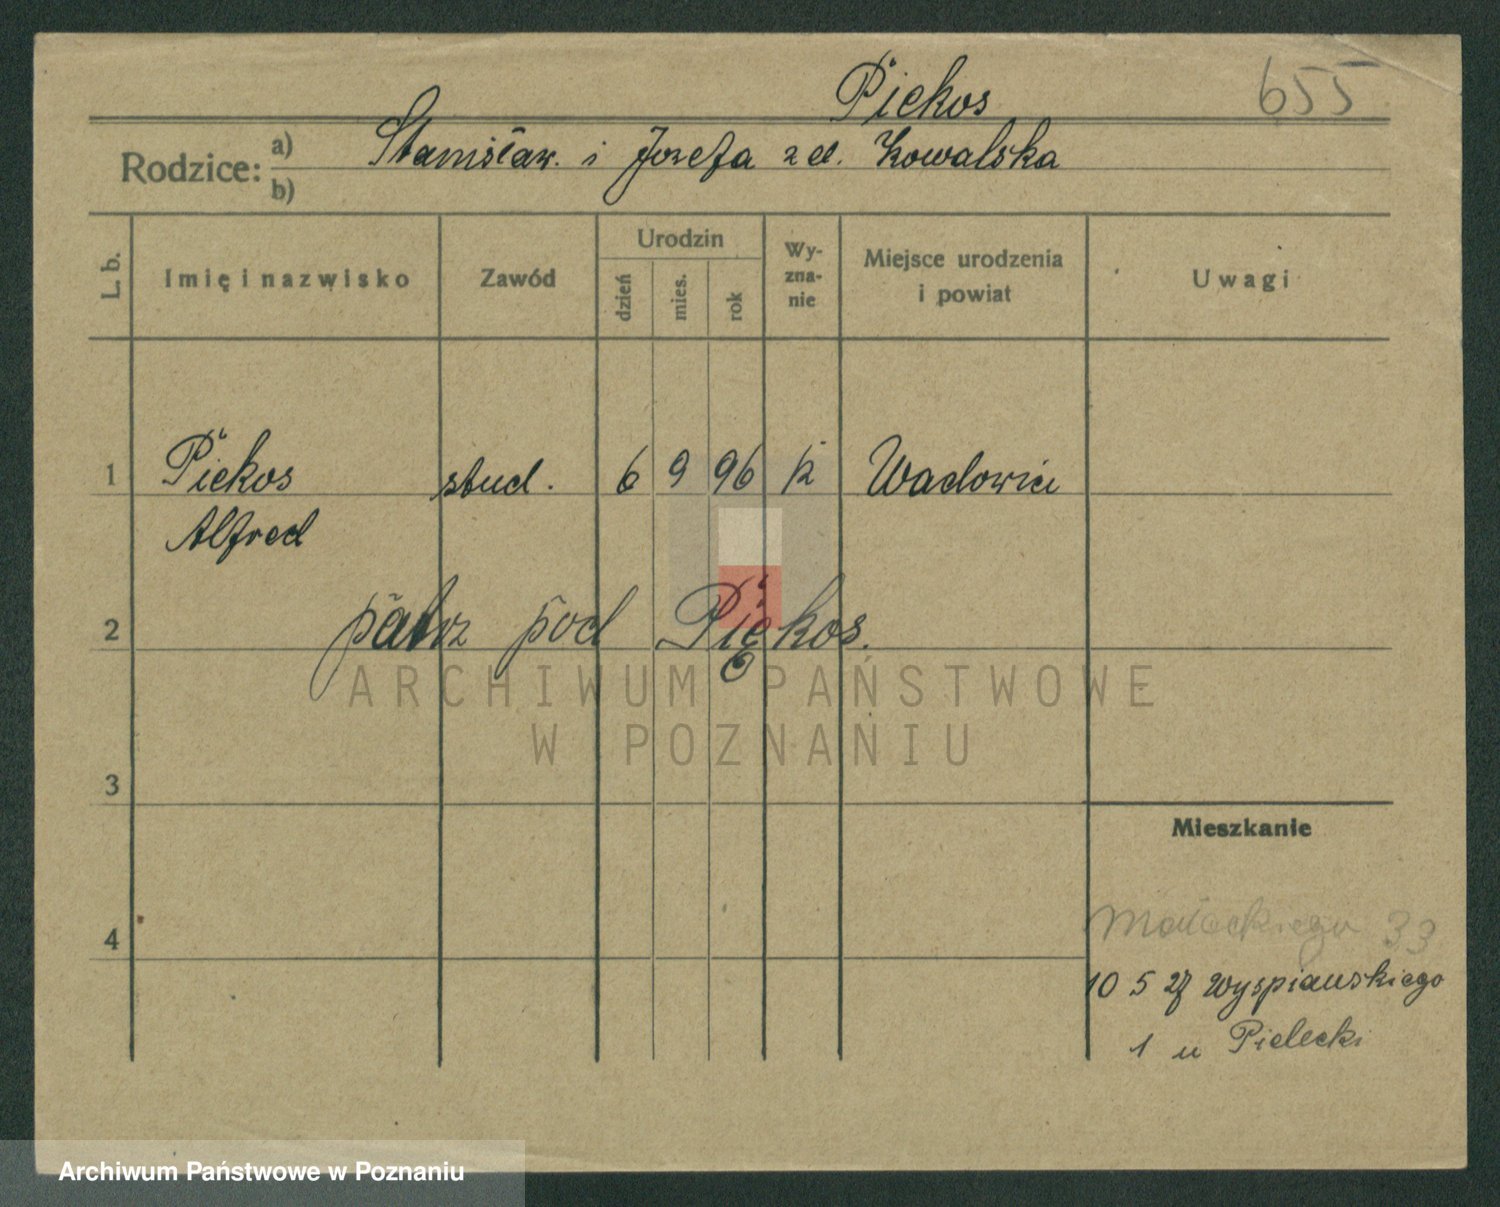 Piekos 655
Rodzice: a) Stanisław. i Jozefa z d. Kowalska
b)
L. b. Imię i nazwisko Zawód Urodzin dzień mies. rok Wy-zna-nie Miejsce urodzenia i powiat Uwagi
1 Piekos stud. 6 9 96 k Wadowice
Alfred
2 patrz pod Piękos.
ARCHIWUM PAŃSTWOWE
W POZNANIU
3
Mieszkanie
4 Małeckiego 33
10 5 27 Wyspiańskiego
1 u Pielecki
Archiwum Państwowe w Poznaniu